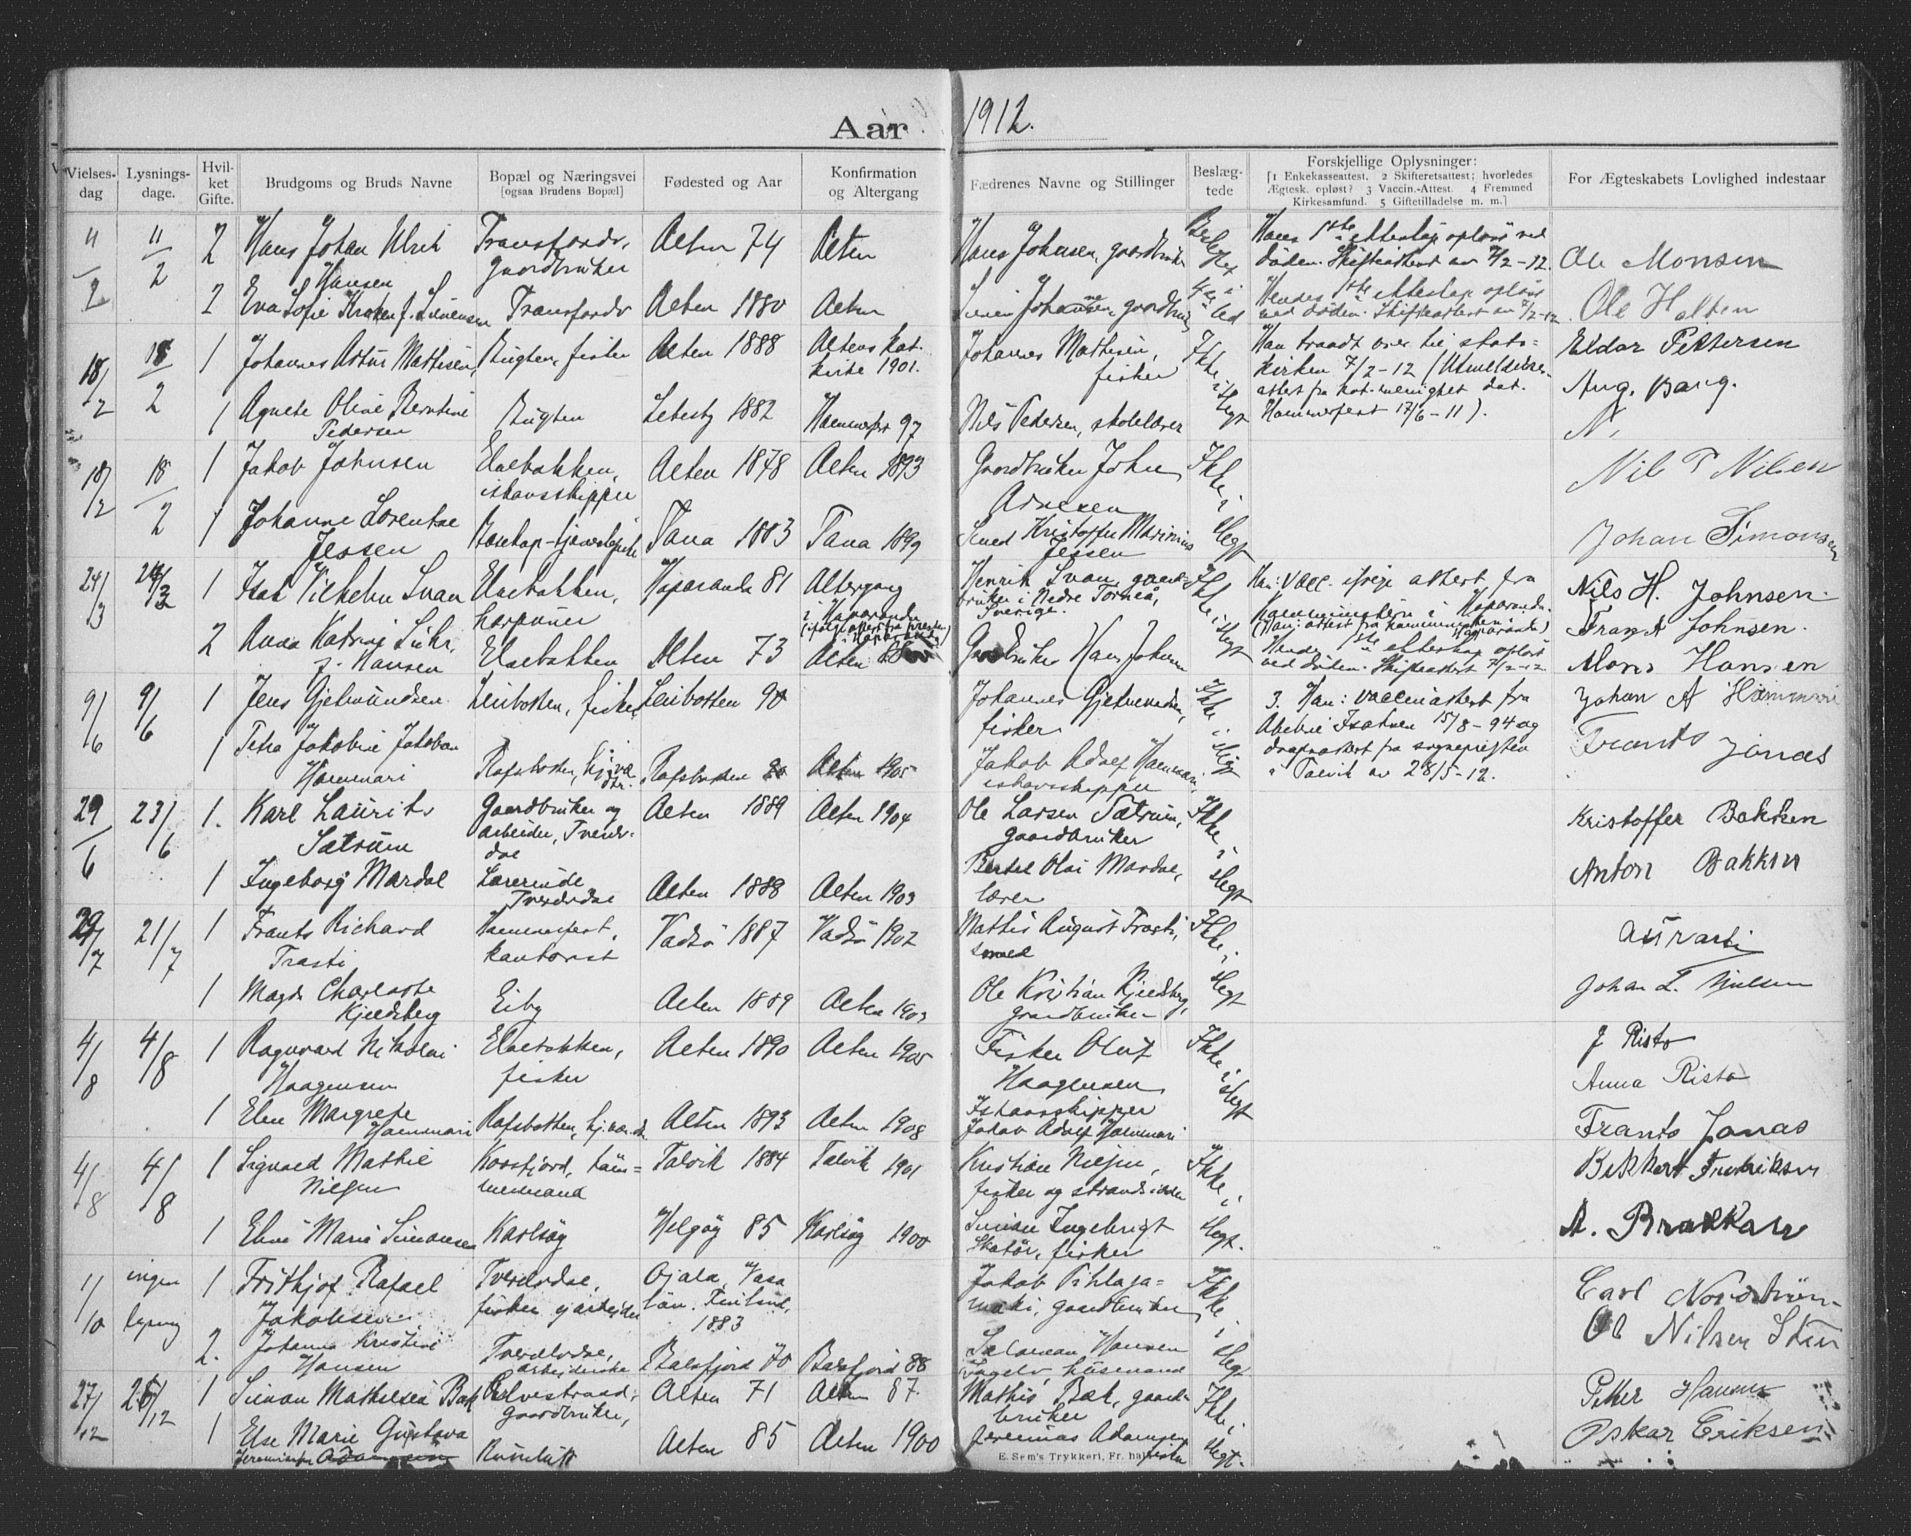 Aar 1912.
Vielses-dag
Lysnings-dage.
Hvil-ket Gifte.
Brudgoms og Bruds Navne
Bopæl og Næringsvei [ogsaa Brudens Bopæl]
Fødested og Aar
Konfirmation og Altergang
Fædrenes Navne og Stillinger
Beslæg-tede
Forskjellige Oplysninger:
[1 Enkekasseattest. 2 Skifteretsattest; hvorledes
Ægtesk. opløst? 3 Vaccin.-Attest. 4 Fremmed
Kirkesamfund. 5 Giftetilladelse m. m.]
For Ægteskabets Lovlighed indestaar
11/2 11/2 2 Hans Johan Ulrik Hansen
Transfarelv, gaardbruker
Alten 74
Alten
Hans Johnsen, gaardbruker
Hans 1ste ekteskap opløst ved
døden. Skifteattest av 7/2-12.
Ole Monsen
2 Eva Sofie
Alten 1880
Alten
Hendes 1ste ekteskap opløst
ved døden. Skifteattest av 7/2-12.
Ole Holten
18/2 18/2 1 Johannes Artur Mathisen,
Bugten, fisker
Alten 1888
Altens kat. kirke 1901.
Johannes Mathisen, fisker
Ikke i slegt
Han traadt over til stats-
kirken 7/2-12 (Utmeldelses-
attest fra kat. menighet dat.
Hammerfest 17/6-11).
Eldar Pettersen
Aug. Bang.
N.
1 Agnete Oline Berntine Pedersen
Bugten
Lebesby 1882
Hammerfest 97
Nils Pedersen, skolelærer
18/2 18/2 1 Jakob Johnsen
Elvebakken, ishavsskipper
Alten 1878
Alten 1893
Gaardbruker John
Ikke i slegt
Nil P Nilsen
1 Johanne Lorentse Jessen
Tana 1883
Tana 1899
Smed Kristoffer Marinius Jessen
Johan Simonsen
24/3 24/3 1 Isak Vilhelm Svan
Elvebakken, harpuner
Haparanda 81
Altergang i Haparanda
Henrik Svan, gaard-
bruker i Nedre Torneå, Sverige.
Ikke i slegt
Nils H. Johnsen.
Frans A Johnsen.
2 Anna Katrine
f. Hansen
Elvebakken
Alten 73
Alten
Gaardbruker Hans Johnsen
Hendes 1ste ekteskap opløst
ved døden. Skifteattest 7/2-12
Mons Hansen
9/6 9/6 1 Jens Gjetmundsen
Leirbotten, fisker
Leirbotten 90
Johannes Gjetmundsen, fisker
Ikke i slegt
3. Han: vaccinattest fra
Isaksen 15/8-94 og
daapsattest fra sognepresten
i Talvik av 28/5-12.
Johan A Hammari
Frants Jonas
1 Petra Jakobine Jakobsen Hammari
Rafsbotten
Rafsbotten
Alten 1905
Jakob Adolf Hammari, ishavsskipper
29/6 23/6 1. Karl Laurits Sætrum
Gaardbruker og
arbeider, Tverelv-
dal
Alten 1889
Alten 1904
Ole Larsen Sætrum, gaardbruker
Ikke i slegt
Kristoffer Bakken
1 Ingeborg Mardal
Lærerinde Tverelvdal
Alten 1888
Alten 1903
Bertel Olai Mardal, lærer
Anton Bakken
29/7 21/7 1 Frants Richard Trasti
Hammerfest, kontorist
Vadsø 1887
Vadsø 1902
Mathis August Trasti, smed
Ikke i slegt
1 Magda Charlotte Kjeldsberg
Eiby
Alten 1889
Alten 1903
Ole Kristian Kjeldsberg, gaardbruker
Johan L. Nielsen
4/8 4/8 1 Ragnvald Nikolai Haagensen
Elvebakken, fisker
Alten 1890
Alten 1905
Fisker Oluf Haagensen
Ikke i slegt
J Risto
Anna Risto
1 Elen Margrete Hammari
Rafsbotten,
Alten 1893
Alten 1908
Ishavsskipper Jakob Adolf Hammari
Frants Jonas
4/8 4/8 1 Sigvald Mathis Nilsen
Korsfjord, tøm-
mermand
Talvik 1884
Talvik 1901
Kristian Nilsen,
fisker og strandsidder
Ikke i slegt.
1 Eline Marie Simonsen
Karlsøy
Helgøy 85
Karlsøy 1900
Simon Ingebrigt
fisker
1/10 ingen lysning 1 Frithjof Rafael Jakobsen
Tverelvdal,
fisker og arbeider
Ojala, Vasa
län. Finland, 1883
Jakob Pihlaga-
maki, gaardbruker
Ikke i slegt
Carl Nordström
2. Johanna Kristine Hansen
Tverelvdal,
Balsfjord 70
Balsfjord 88
Salomon Hansen
husmand
Ol Nilsen
27/12 1 Simon Mathisen Bak
gaardbruker,
Alten 71
Alten 87
Mathis Bak, gaard-
bruker
Ikke i slegt.
Petter Hansen
1 Else Marie Gustava
Alten 85
Alten 1900
Jeremias Adamsen fisker
Oskar Eriksen
E. Sem's Trykkeri, Fr. hald